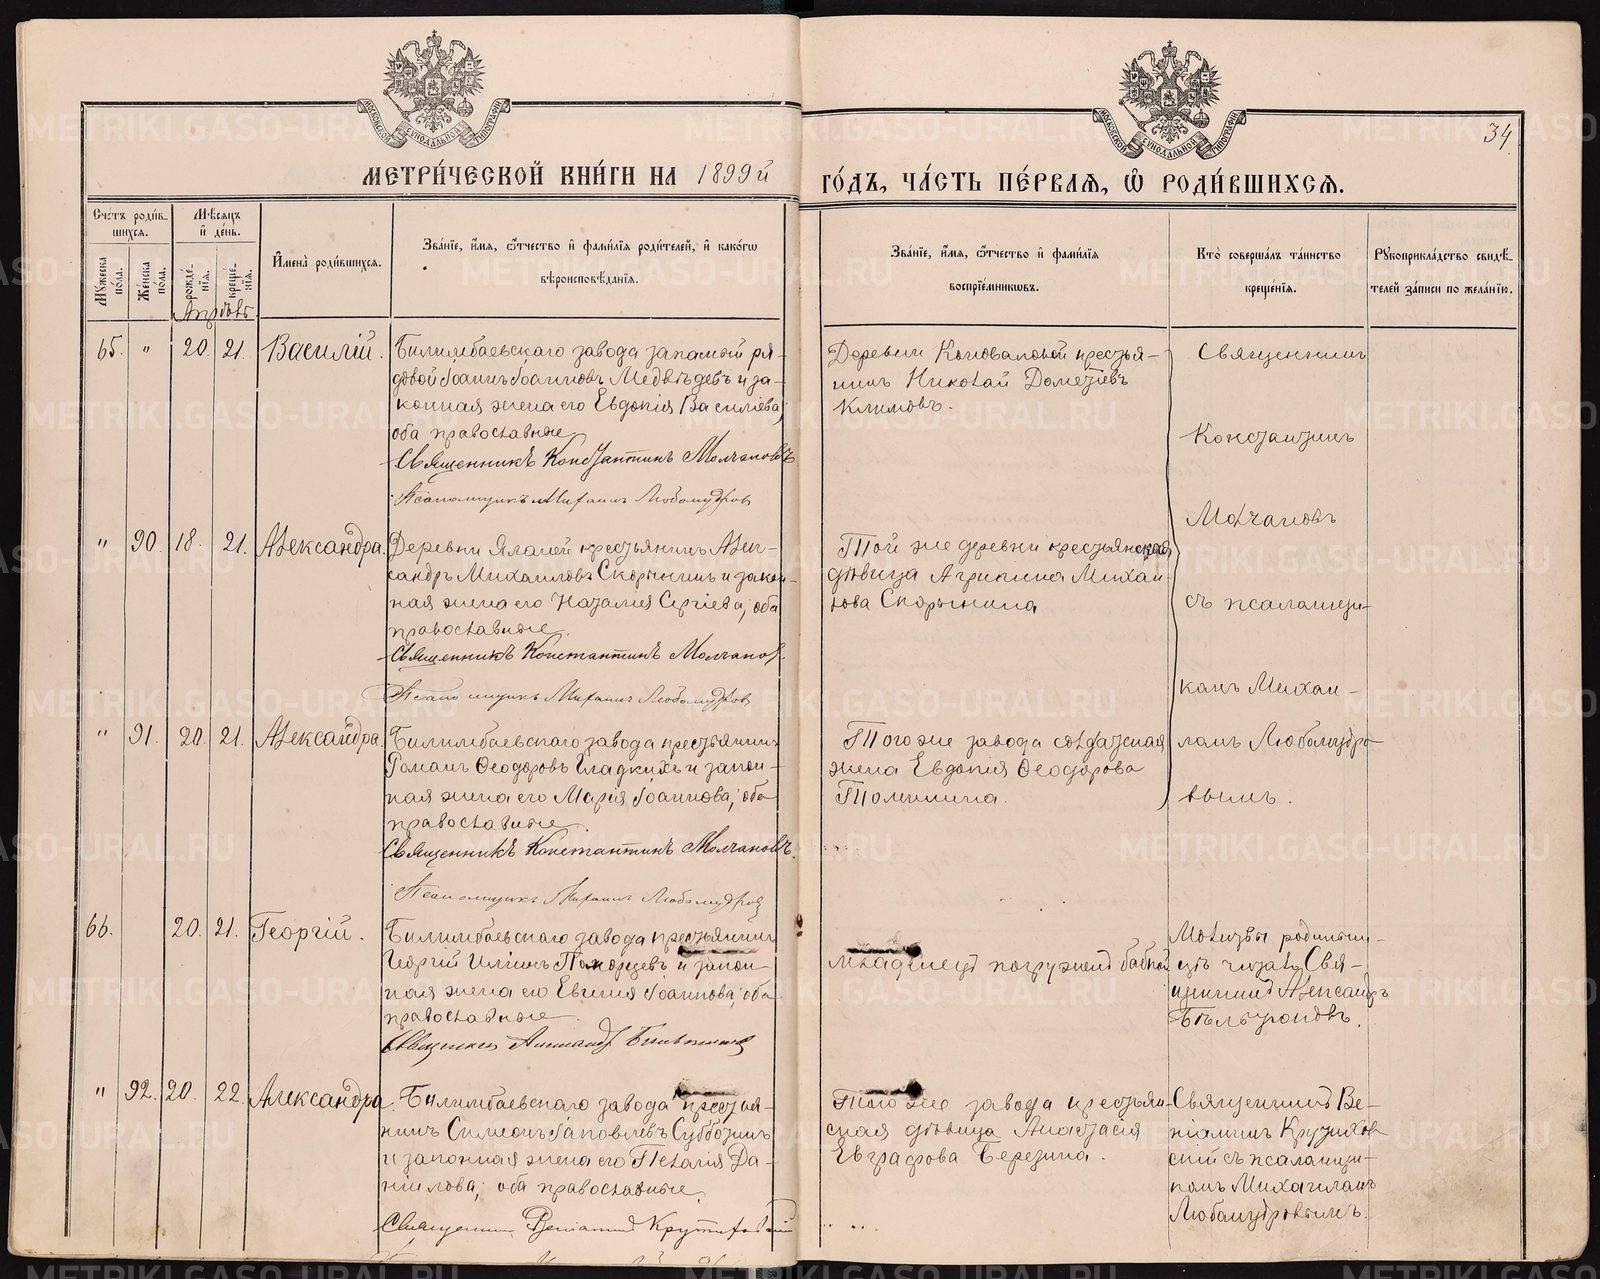 МЕТРИ́ЧЕСКОЙ КНИ́ГИ НА 1899й ГО́ДЪ, ЧА́СТЬ ПЕ́РВАѦ, Ѿ РОДИ́ВШИХСѦ.
34
МОСКОВСКОЙ СѴНОДАЛЬНОЙ ТИПОГРАФІИ
МОСКОВСКОЙ СѴНОДАЛЬНОЙ ТИПОГРАФІИ
Сче́тъ роди́в-
шихсѧ.
Мꙋ́жеска по́ла.
Же́нска по́ла.
Мѣ́сѧцъ
и҆ де́нь.
рожде́-
нїѧ.
креще́-
нїѧ.
И҆мена̀ роди́вшихсѧ.
Зва́нїе, и҆́мѧ, ѻ҆́тчество и҆ фами́лїѧ роди́телей, и҆ како́гѡ
вѣроисповѣ́данїѧ.
Зва́нїе, и҆́мѧ, ѻ҆́тчество и҆ фами́лїѧ
воспрїе́мникѡвъ.
Кто̀ соверша́лъ та́инство
креще́нїѧ.
Рꙋкоприкла́дство свидѣ́-
телей за́писи по жела́нїю.
65. " 20. 21. Василій.
Билимбаевскаго завода запасной ря-
довой Іоаннъ Іоанновъ Медвѣдевъ и за-
конная жена его Евдокія Василіева,
оба православные
Священникъ Константинъ Молчановъ
Псаломщикъ Михаилъ Любомудров
Деревни Коноваловой крестья-
нинъ Николай Дометіевъ
Климовъ.
Священникъ
Константинъ
Молчановъ
съ псаломщи-
комъ Михаи-
ломъ Любомудро-
вымъ.
" 90. 18. 21. Александра.
Деревни Ялачей крестьянинъ Алек-
сандръ Михаиловъ Скорынинъ и закон-
ная жена его Наталія Сергіева, оба
православные.
Священникъ Константинъ Молчанов
Псаломщикъ Михаилъ Любомудров
Той же деревни крестьянская
дѣвица Агрипина Михаи-
лова Скорынина
" 91. 20. 21. Александра.
Билимбаевскаго завода крестьянинъ
Романъ Ѳеодоровъ Гладкихъ и закон-
ная жена его Марія Іоаннова, оба
православные.
Священникъ Константинъ Молчановъ.
Псаломщикъ Михаилъ Любомудров
Того же завода солдатская
жена Евдокія Ѳеодорова
Томилина.
66. 20. 21. Георгій.
Билимбаевскаго завода крестьянинъ
Георгій Иліинъ и закон-
ная жена его Евгенія Іоаннова, оба
православные.
Священник Александр
младенец погружен бабкой
Молитвы родильни-
цѣ читалъ Свя-
щенник Александръ
" 92. 20. 22. Александра.
Билимбаевскаго завода крестья-
нинъ Симеонъ Іаковлевъ Субботинъ
и законная жена его Пелагія Да-
ніилова, оба православные.
Священник Веніамин Крутиховский
Того же завода крестьян-
ская дѣвица Анастасія
Евграфова Березина.
Священник Ве-
ніаминъ Крутихов-
скій съ псаломщи-
комъ Михаиломъ
Любомудровымъ.
METRIKI.GASO-URAL.RU